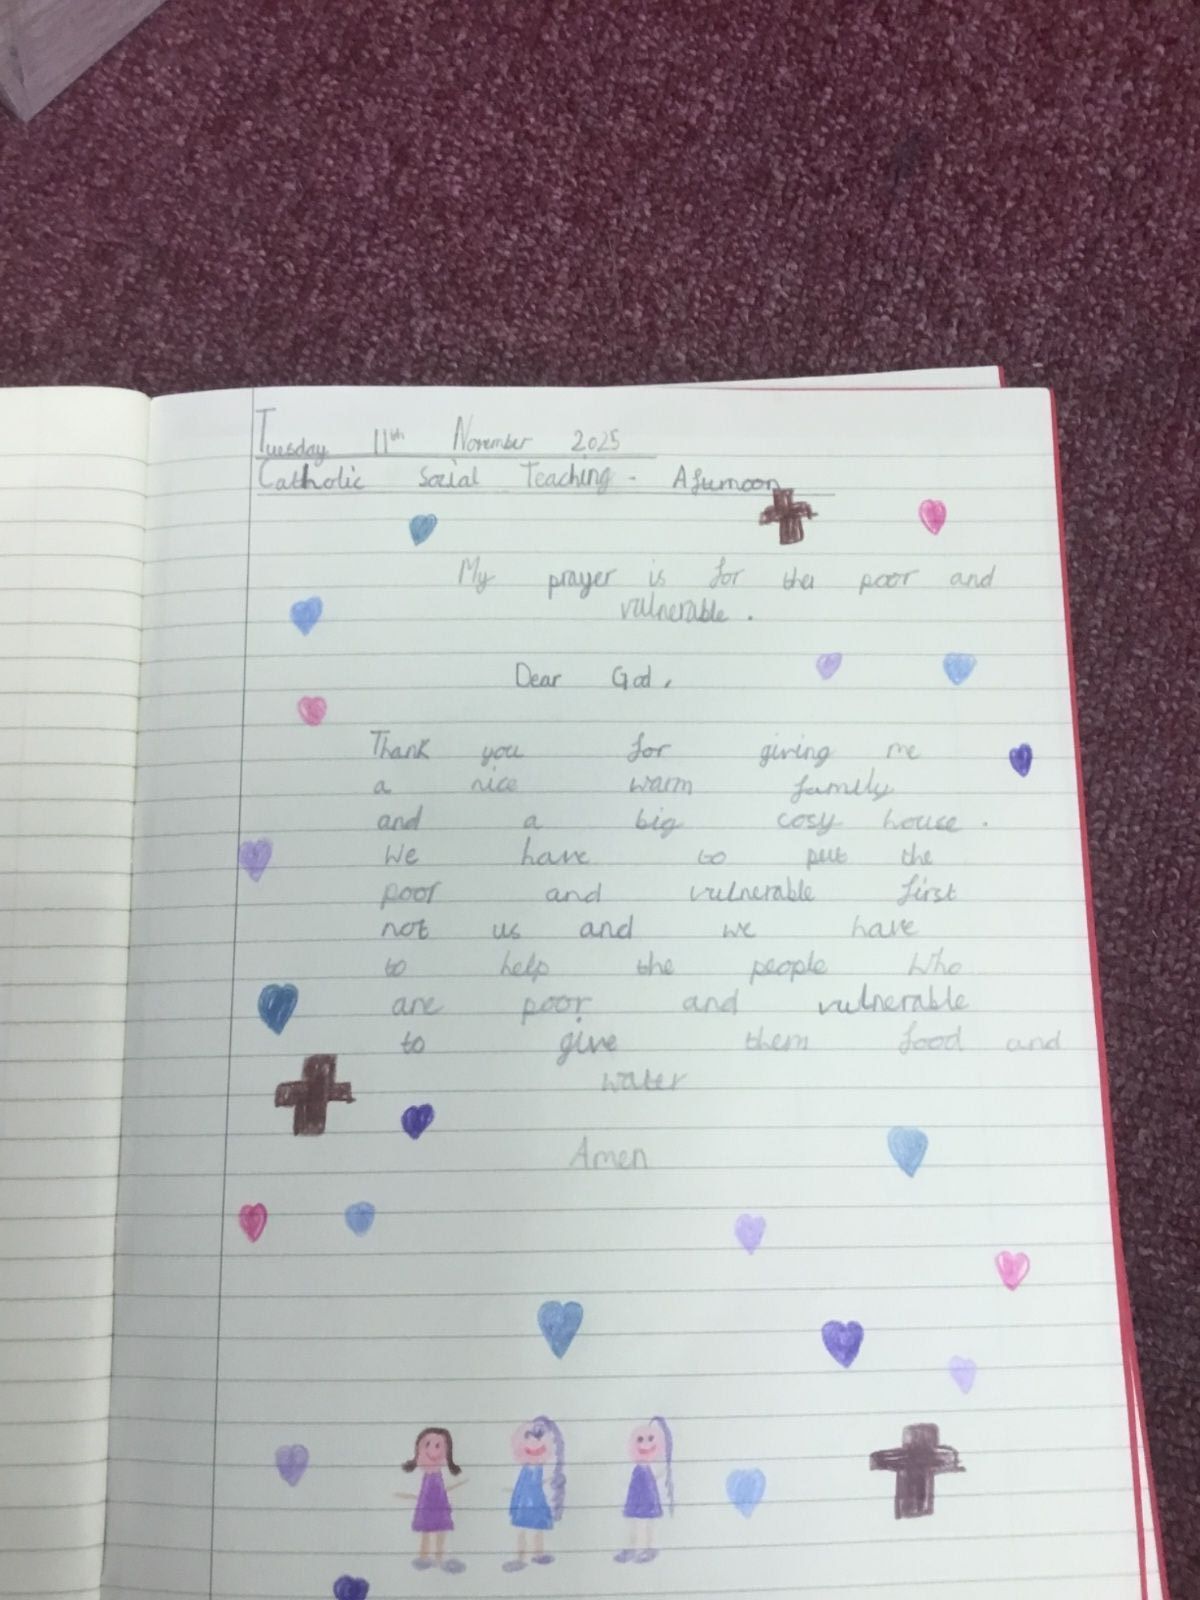 Tuesday 11th November 2025
Catholic Social Teaching - Afurnoon
My prayer is for the poor and
vulnerable.
Dear God,
Thank you for giving me
a nice warm family
and a big cosy house.
We have to put the
poor and vulnerable first
not us and we have
to help the people who
are poor and vulnerable
to give them food and
water
Amen